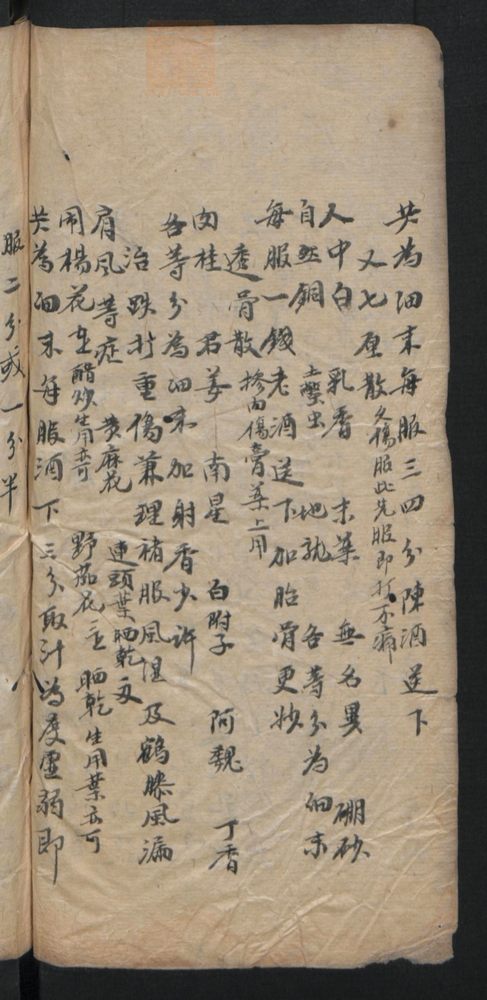 共為細末每服三四分陳酒送下
又七厘散 久傷服此先服即打不痛
人中白 乳香 末藥 無名異 硼砂
自然銅 土鱉虫 地龍 各等分為細末
每服一錢老酒送下加胎骨更妙
透骨散 摻內傷膏藥上用
肉桂 君姜 南星 白附子 阿魏 丁香
各等分為細末加射香少許
治跌打重傷兼理禇服風湿及鶴膝風漏
肩風等症 黃麻花 連頭葉晒乾
鬧楊花 醋炊 生用亦可 野茄花 晒乾生用葉亦可
共為細末每服酒下三分取汁為度虛弱即
服二分或一分半